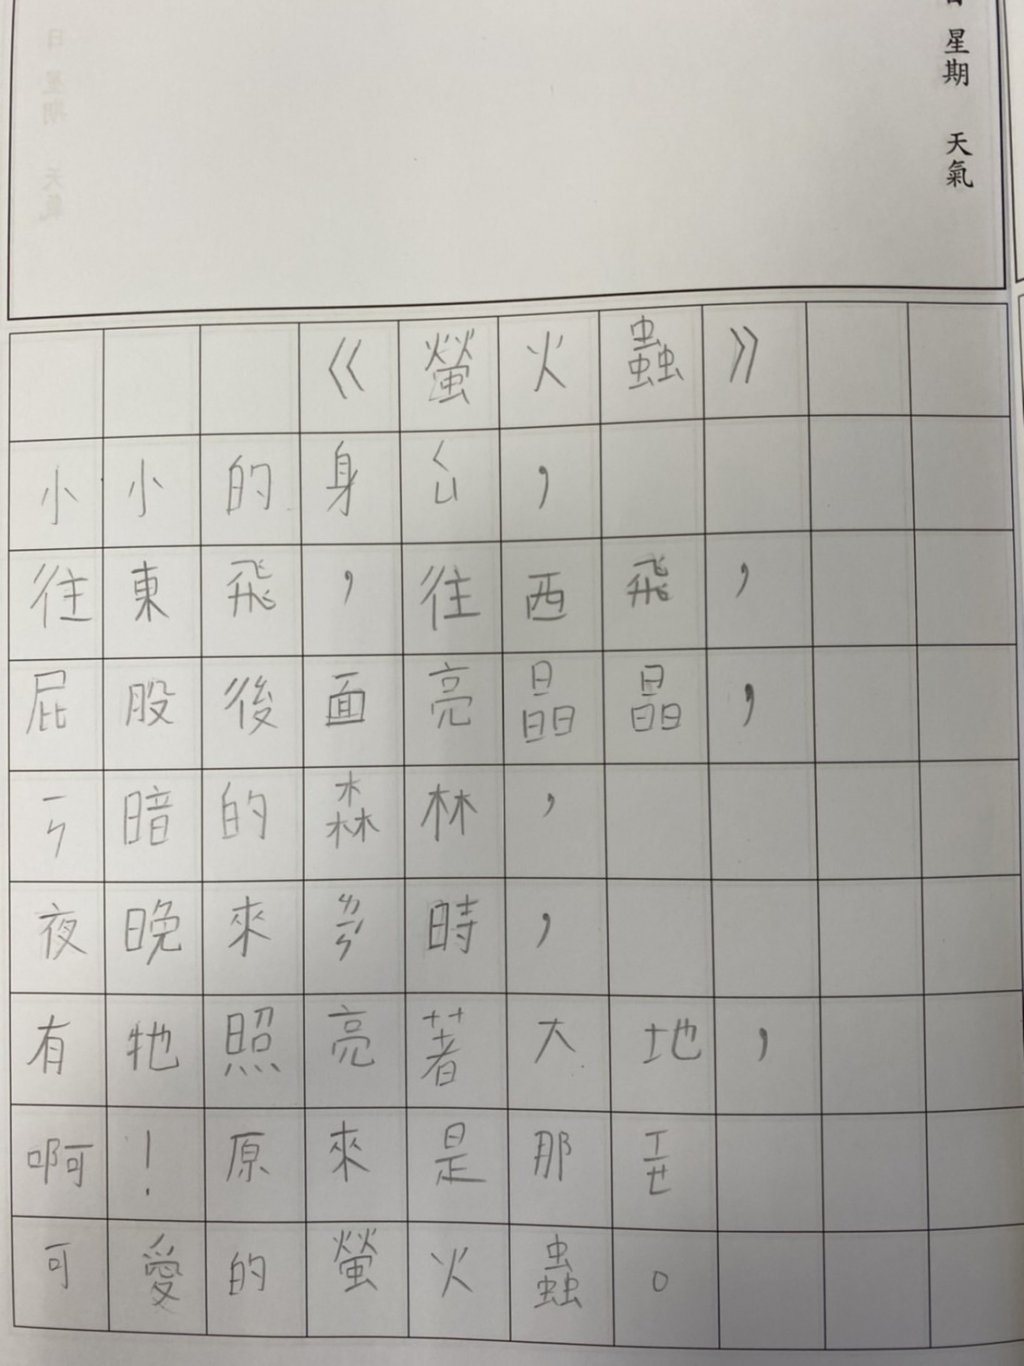 日 星期 天氣
《螢火蟲》
小小的身ㄑㄩ，
往東飛，往西飛，
屁股後面亮晶晶，
ㄧㄣ暗的森林，
夜晚來ㄌㄧㄣˊ時，
有牠照亮著大地，
啊！原來是那ㄒㄧㄝ
可愛的螢火蟲。